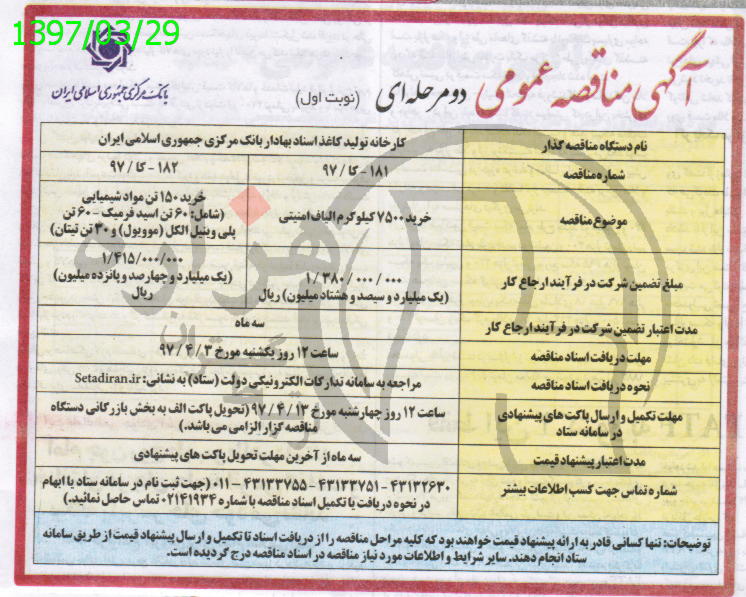 1397/03/29
بانک مرکزی جمهوری اسلامی ایران
آگهی مناقصه عمومی دو مرحله ای (نوبت اول)
نام دستگاه مناقصه گذار
کارخانه تولید کاغذ اسناد بهادار بانک مرکزی جمهوری اسلامی ایران
شماره مناقصه
۱۸۱- کا / ۹۷
۱۸۲- کا / ۹۷
موضوع مناقصه
خرید ۷۵۰۰ کیلوگرم الیاف امنیتی
خرید ۱۵۰ تن مواد شیمیایی
(شامل: ۶۰ تن اسید فرمیک - ۶۰ تن
پلی وینیل الکل (موویول) و ۳۰ تن تیتان)
مبلغ تضمین شرکت در فرآیند ارجاع کار
۱/۳۸۰/۰۰۰/۰۰۰
(یک میلیارد و سیصد و هشتاد میلیون) ریال
۱/۴۱۵/۰۰۰/۰۰۰
(یک میلیارد و چهارصد و پانزده میلیون)
ریال
مدت اعتبار تضمین شرکت در فرآیند ارجاع کار
سه ماه
مهلت دریافت اسناد مناقصه
ساعت ۱۲ روز یکشنبه مورخ ۹۷/۴/۳
نحوه دریافت اسناد مناقصه
مراجعه به سامانه تدارکات الکترونیکی دولت (ستاد) به نشانی: Setadiran.ir
مهلت تکمیل و ارسال پاکت های پیشنهادی
در سامانه ستاد
ساعت ۱۲ روز چهارشنبه مورخ ۹۷/۴/۱۳ (تحویل پاکت الف به بخش بازرگانی دستگاه
مناقصه گزار الزامی می باشد.)
مدت اعتبار پیشنهاد قیمت
سه ماه از آخرین مهلت تحویل پاکت های پیشنهادی
شماره تماس جهت کسب اطلاعات بیشتر
۴۳۱۳۲۶۳۰ - ۴۳۱۳۳۷۵۱ - ۴۳۱۳۳۷۵۵ - ۰۱۱ (جهت ثبت نام در سامانه ستاد یا ابهام
در نحوه دریافت یا تکمیل اسناد مناقصه با شماره ۰۲۱۴۱۹۳۴ تماس حاصل نمائید.)
توضیحات: تنها کسانی قادر به ارائه پیشنهاد قیمت خواهند بود که کلیه مراحل مناقصه را از دریافت اسناد تا تکمیل و ارسال پیشنهاد قیمت از طریق سامانه
ستاد انجام دهند. سایر شرایط و اطلاعات مورد نیاز مناقصه در اسناد مناقصه درج گردیده است.